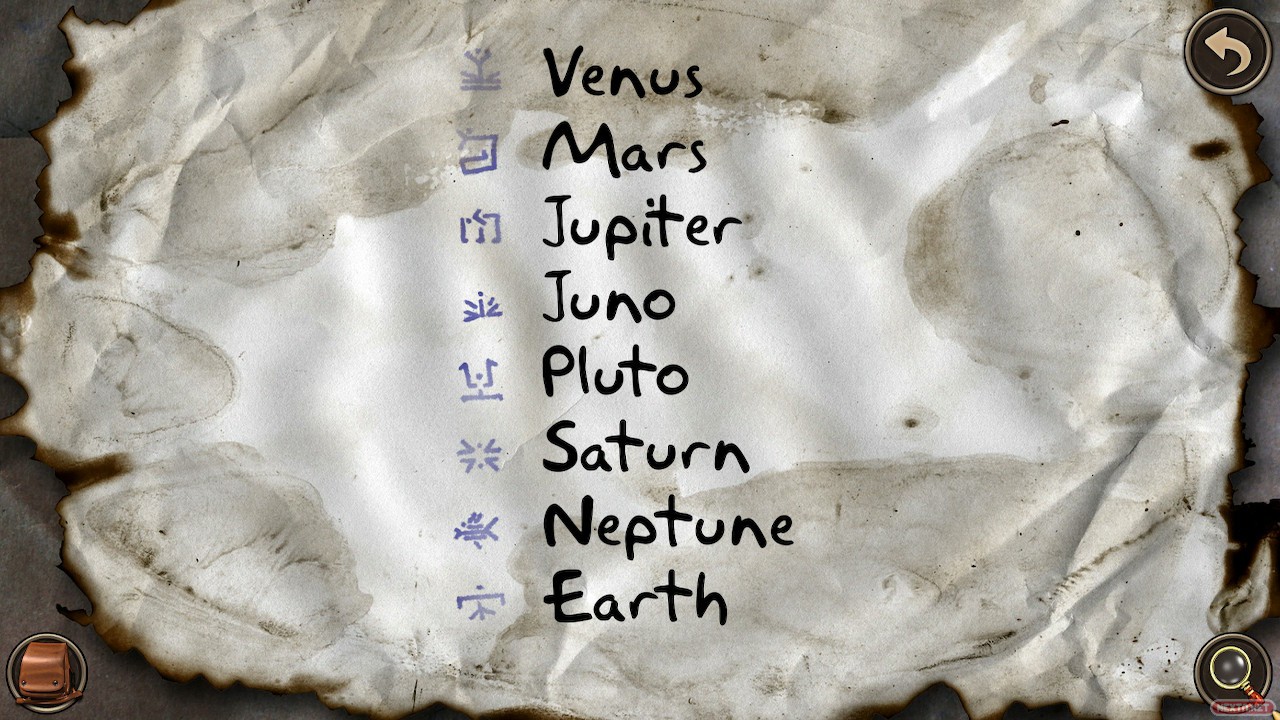 Venus
Mars
Jupiter
Juno
Pluto
Saturn
Neptune
Earth